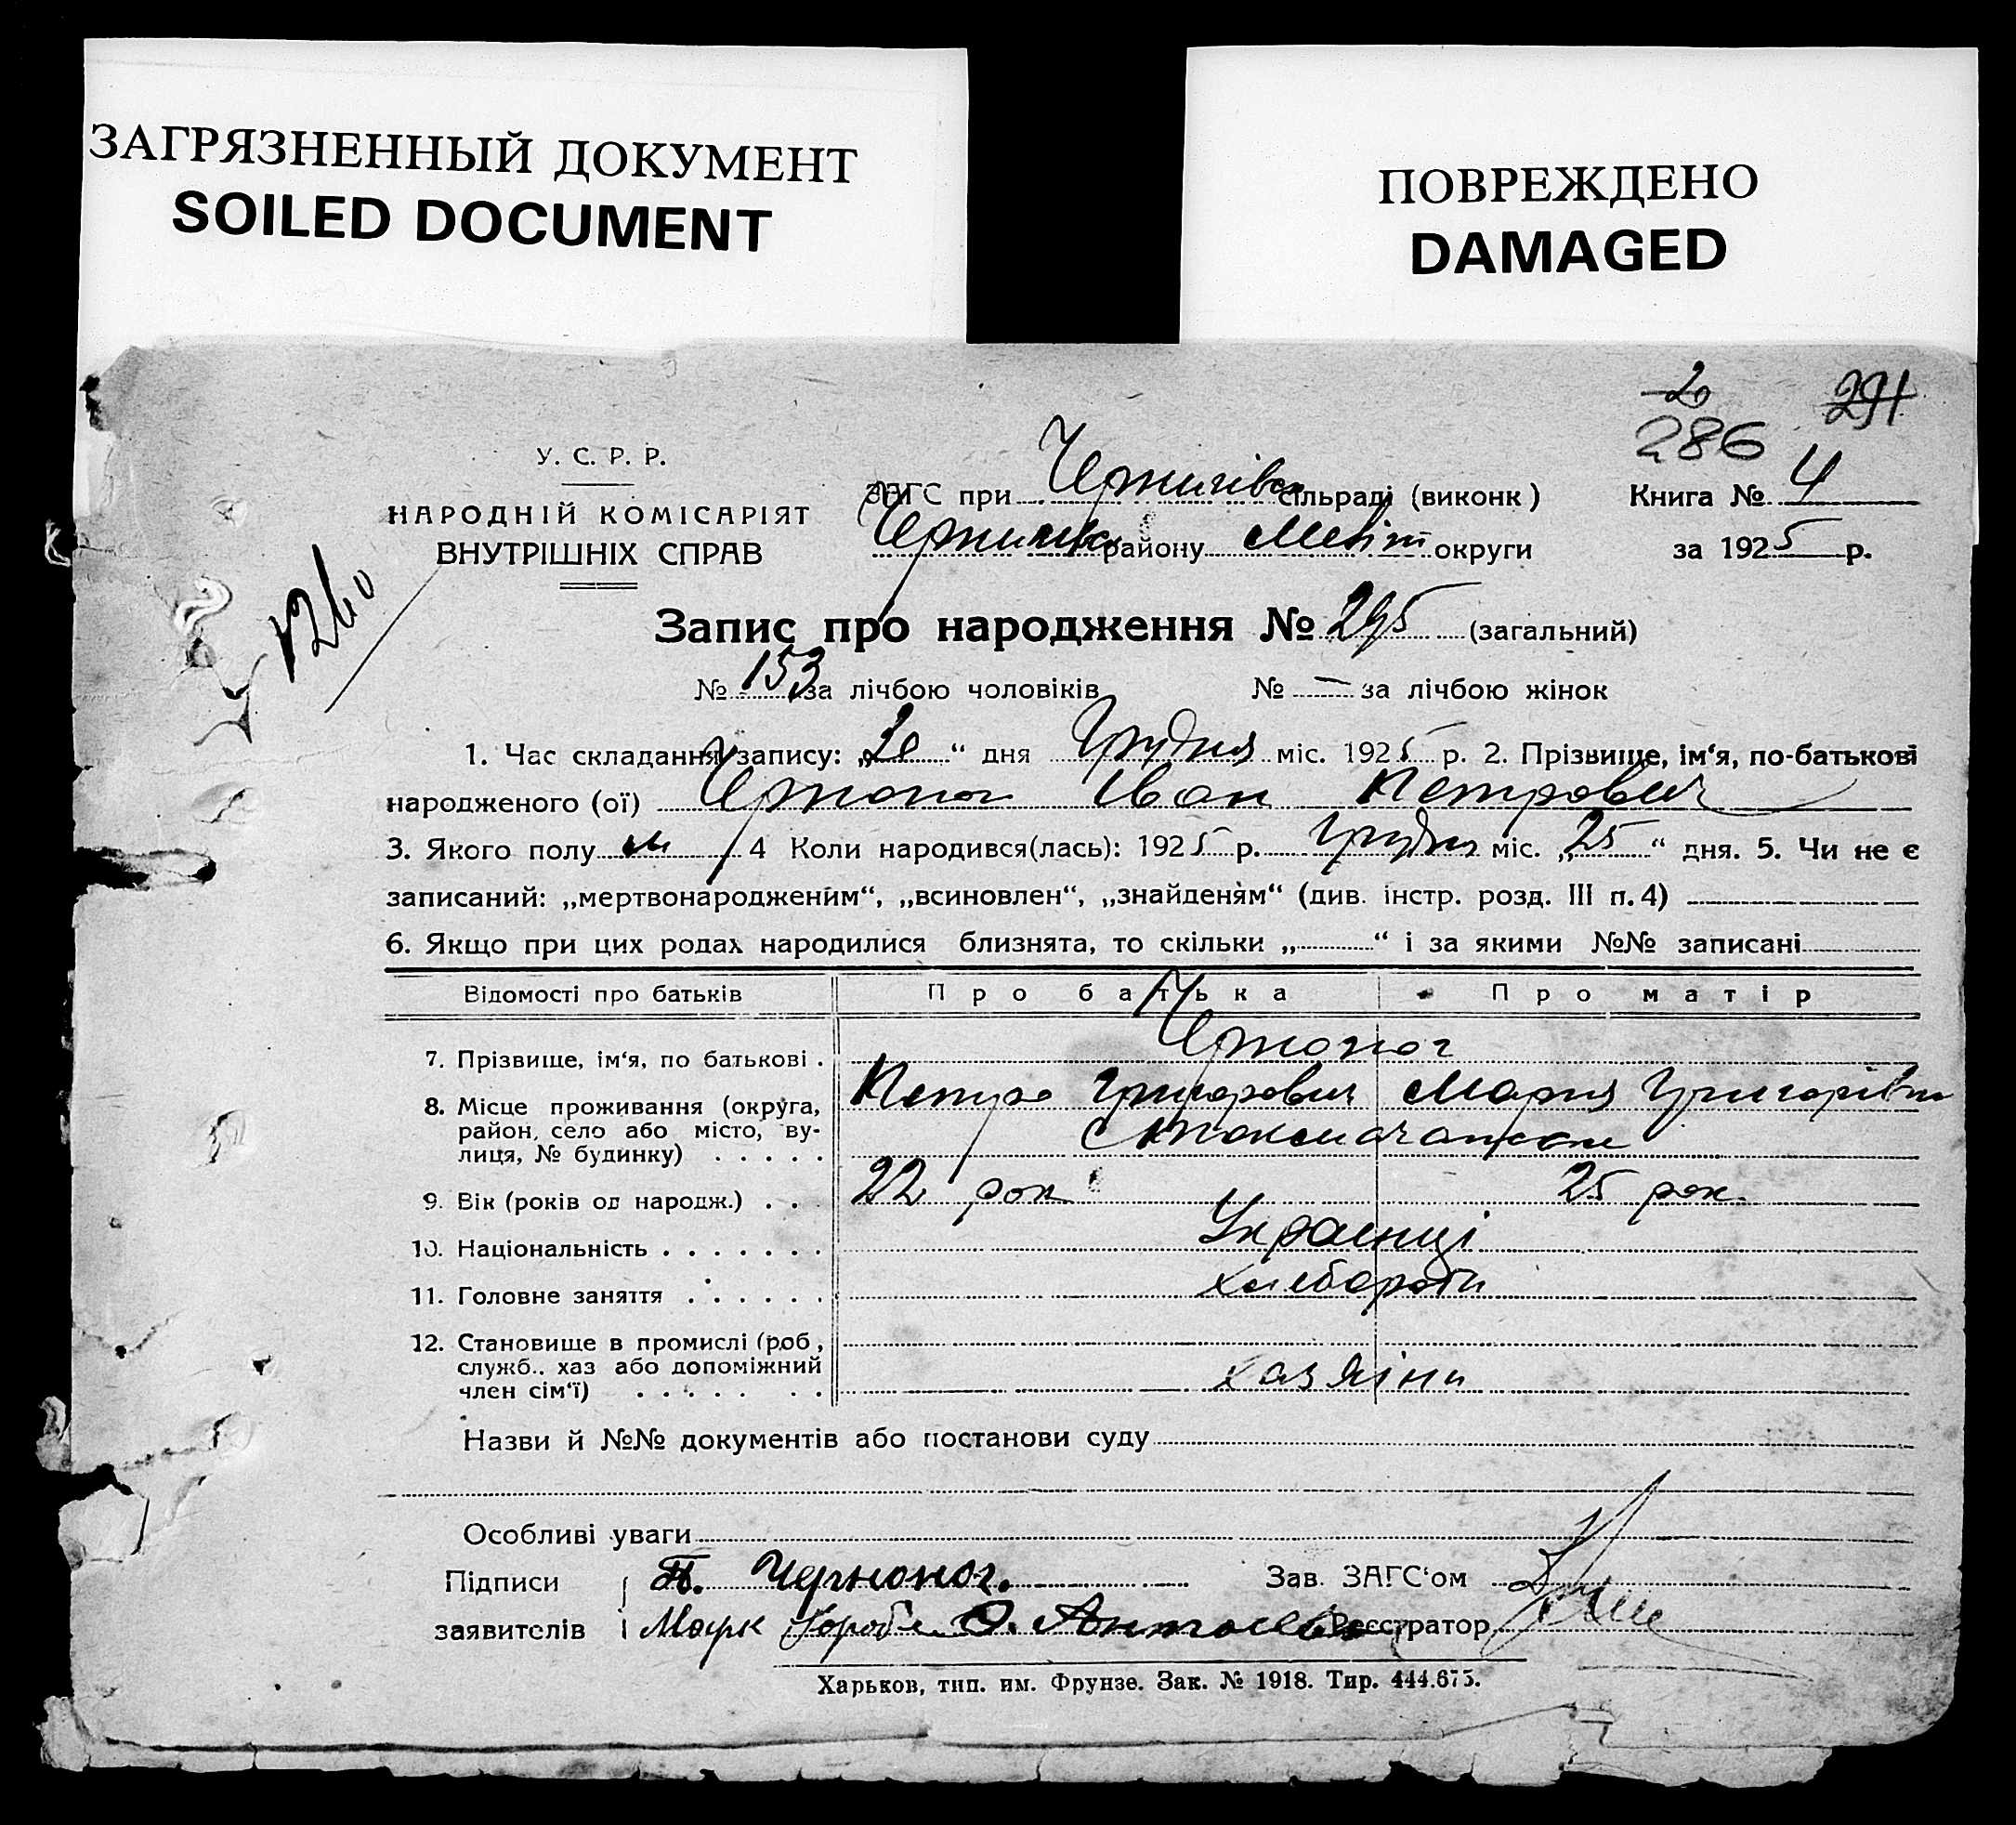 ЗАГРЯЗНЕННЫЙ ДОКУМЕНТ
SOILED DOCUMENT
ПОВРЕЖДЕНО
DAMAGED
2 291
286
У. С. Р. Р.
НАРОДНІЙ КОМІСАРІЯТ
ВНУТРІШНІХ СПРАВ
ЗАГС при Чернигівск сільраді (виконк) Книга № 4
району Меліт округи за 1925 р.
1260
Запис про народження № 295 (загальний)
№ 153 за лічбою чоловіків № — за лічбою жінок
1. Час складання запису: „20“ дня Грудня міс. 1925 р. 2. Прізвище, ім‘я, по-батькові
народженого (ої) Чорноног Іван Петрович
3. Якого полу м 4 Коли народився(лась): 1925 р. Грудня міс. „25“ дня. 5. Чи не є
записаний: „мертвонародженим“, „всиновлен“, „знайденям“ (див. інстр. розд. III п. 4)
6. Якщо при цих родах народилися близнята, то скільки „ “ і за якими №№ записані
Відомості про батьків Про батька Про матір
7. Прізвище, ім‘я, по батькові . Чорноног
Петро Григорович Мария Григорівна
8. Місце проживання (округа,
район, село або місто, ву-
лиця, № будинку) . . . . .
9. Вік (років од народж.) . . . 22 рок 25 рок.
10. Національність . . . . . . . Украенці
11. Головне заняття . . . . . . хлебороби
12. Становище в промислі (роб,
служб., хаз або допоміжний
член сім‘ї) . . . . . . . хазяіни
Назви й №№ документів або постанови суду
Особливі уваги
Підписи П. Чорноног. Зав. ЗАГС‘ом
заявителів Марк Реєстратор
Харьков, тип. им. Фрунзе. Зак. № 1918. Тир. 444.675.